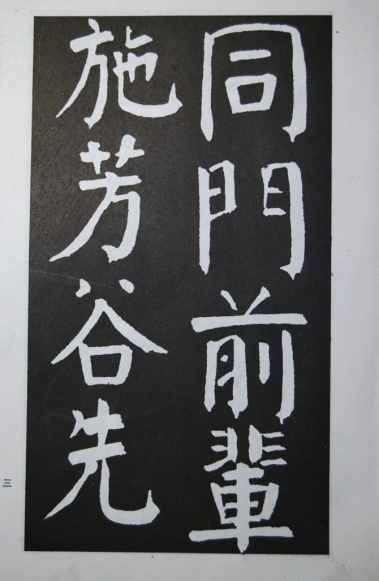 同門前輩
施芳谷先
三